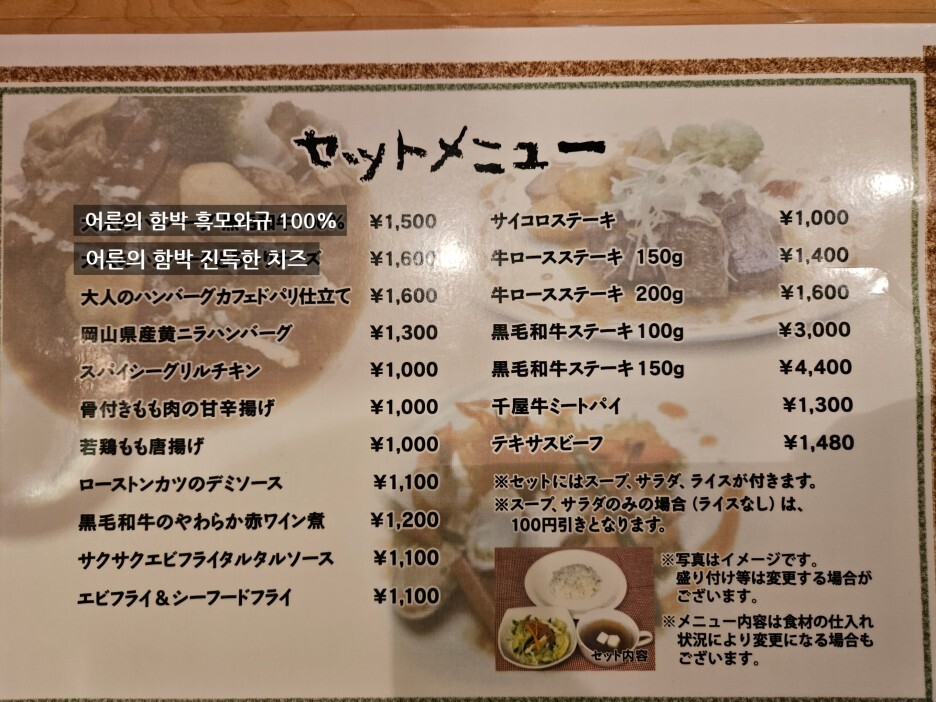 セットメニュー
어른의 함박 흑모와규 100% ¥1,500
어른의 함박 진득한 치즈 ¥1,600
大人のハンバーグカフェドパリ仕立て ¥1,600
岡山県産黄ニラハンバーグ ¥1,300
スパイシーグリルチキン ¥1,000
骨付きもも肉の甘辛揚げ ¥1,000
若鶏もも唐揚げ ¥1,000
ローストンカツのデミソース ¥1,100
黒毛和牛のやわらか赤ワイン煮 ¥1,200
サクサクエビフライタルタルソース ¥1,100
エビフライ&シーフードフライ ¥1,100
サイコロステーキ ¥1,000
牛ロースステーキ 150g ¥1,400
牛ロースステーキ 200g ¥1,600
黒毛和牛ステーキ100g ¥3,000
黒毛和牛ステーキ150g ¥4,400
千屋牛ミートパイ ¥1,300
テキサスビーフ ¥1,480
※セットにはスープ、サラダ、ライスが付きます。
※スープ、サラダのみの場合(ライスなし)は、
100円引きとなります。
※写真はイメージです。
盛り付け等は変更する場合が
ございます。
※メニュー内容は食材の仕入れ
状況により変更になる場合も
ございます。
セット内容